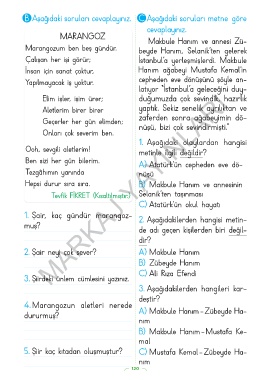 B Aşağıdaki soruları cevaplayınız.
MARANGOZ
Marangozum ben beş gündür.
Çalışan her işi görür;
İnsan için sanat çoktur,
Yapılmayacak iş yoktur.
Elim işler, isim ürer;
Aletlerim birer birer
Geçerler her gün elimden;
Onları çok severim ben.
Ooh, sevgili aletlerim!
Ben sizi her gün bilerim,
Tezgâhımın yanında
Hepsi durur sıra sıra.
Tevfik FİKRET (Kısaltılmıştır)
1. Şair, kaç gündür marangoz-
muş?
2. Şair neyi çok sever?
3. Şiirdeki anlam cümlesini yazınız.
4. Marangozun aletleri nerede
dururmuş?
5. Şiir kaç kıtadan oluşmuştur?
C Aşağıdaki soruları metne göre
cevaplayınız.
Makbule Hanım ve annesi Zü-
beyde Hanım, Selanik'ten gelerek
İstanbul'a yerleşmişlerdi. Makbule
Hanım ağabeyi Mustafa Kemal'in
cepheden eve dönüşünü şöyle an-
latıyor "İstanbul'a geleceğini duy-
duğumuzda çok sevindik, hazırlık
yaptık. Sekiz senelik ayrılıktan ve
zaferden sonra ağabeyimin dö-
nüşü, bizi çok sevindirmişti."
1. Aşağıdaki olaylardan hangisi
metinle ilgili değildir?
A) Atatürk'ün cepheden eve dö-
nüşü
B) Makbule Hanım ve annesinin
Selanik'ten taşınması
C) Atatürk'ün okul hayatı
2. Aşağıdakilerden hangisi metin-
de adı geçen kişilerden biri değil-
dir?
A) Makbule Hanım
B) Zübeyde Hanım
C) Ali Rıza Efendi
3. Aşağıdakilerden hangileri kar-
deştir?
A) Makbule Hanım - Zübeyde Ha-
nım
B) Makbule Hanım - Mustafa Ke-
mal
C) Mustafa Kemal - Zübeyde Ha-
nım
MARKAJ YAYINLARI